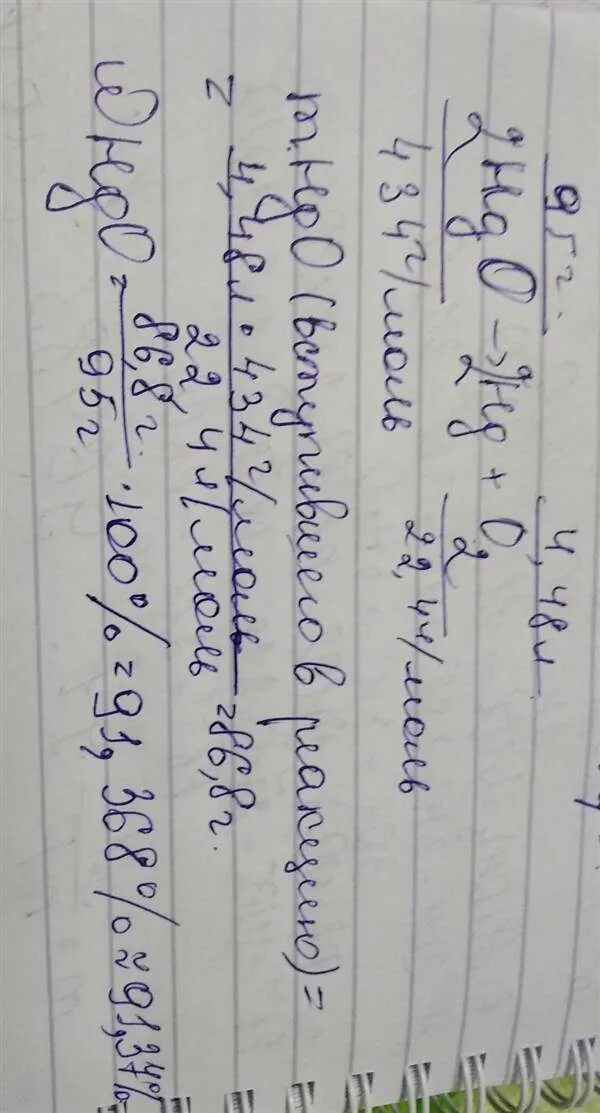 95г. 4,48л.
2HgO → 2Hg + O2
434г/моль 22,4л/моль
m HgO (вступившего в реакцию) =
= 4,48л · 434г/моль / 22,4л/моль = 86,8г.
ω HgO = 86,8г. / 95г · 100% = 91,368% ≈ 91,37%